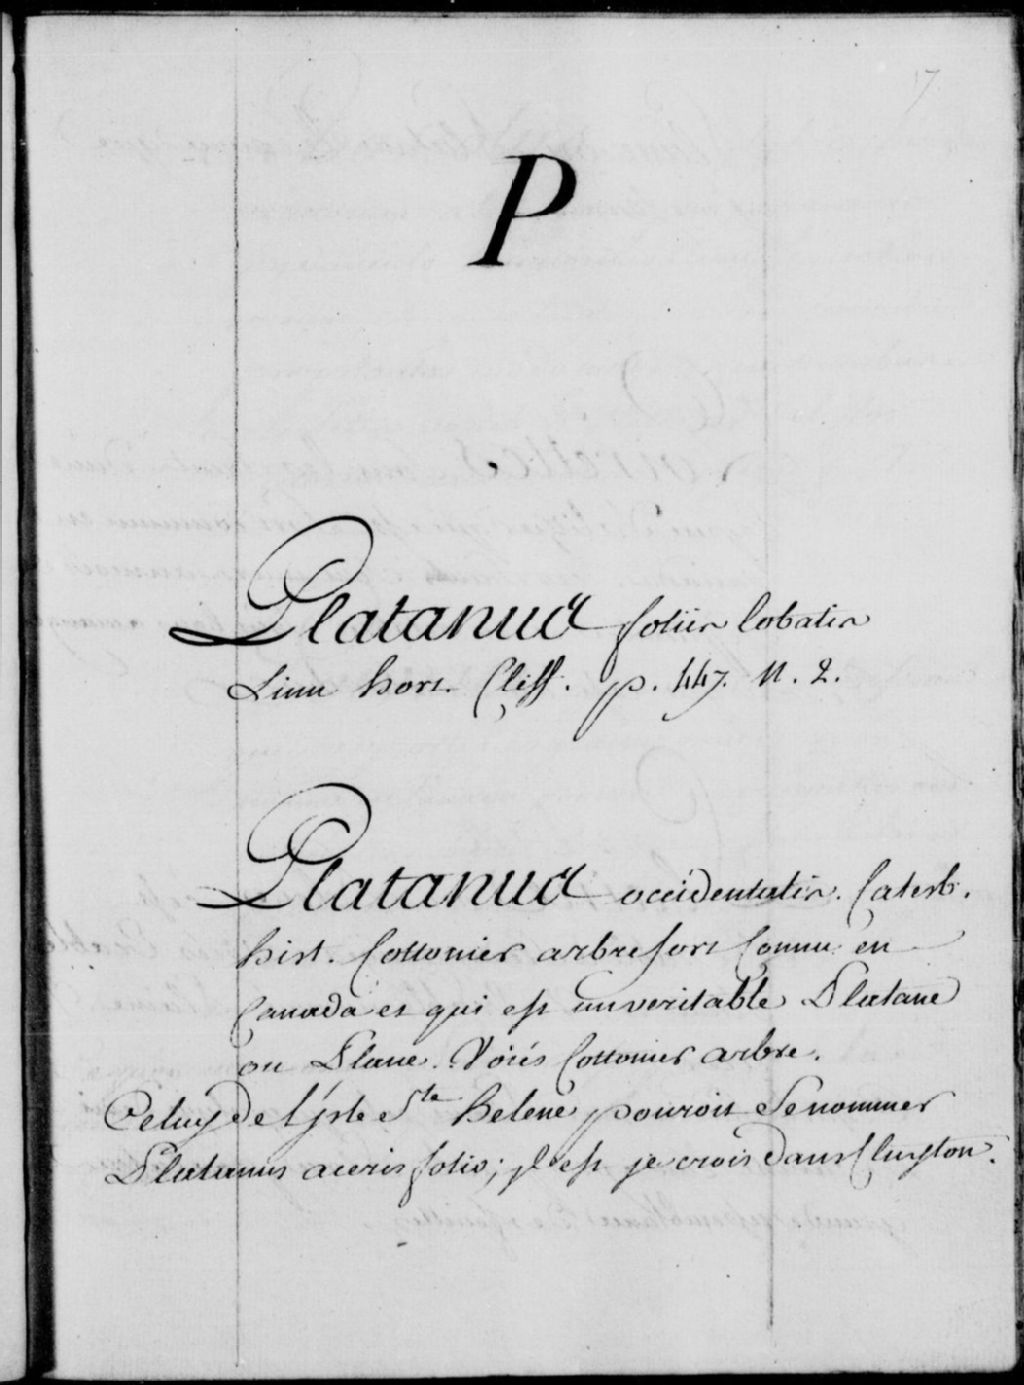 17
P
Platanus foliis lobatis
Linn hort. Cliff. p. 447. N. 2.
Platanus occidentalis. Catesb.
hist. Cottonier arbre fort Connu en
Canada et qui est un veritable Platane
ou Plane. Voiés Cottonier arbre.
Celuy de l'Isle Ste helene pouroit Se nommer
Platanus aceris folio; Il est je crois dans Clayton.